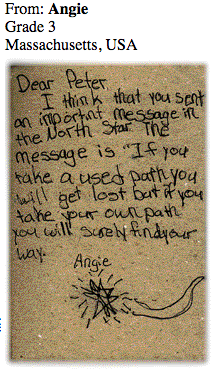 From: Angie
Grade 3
Massachusetts, USA
Dear Peter,
I think that you sent
an importint message in
the North Star. The
message is "If you
take a used path you
will get lost but if you
take your own path
you will surely find your
way.
Angie